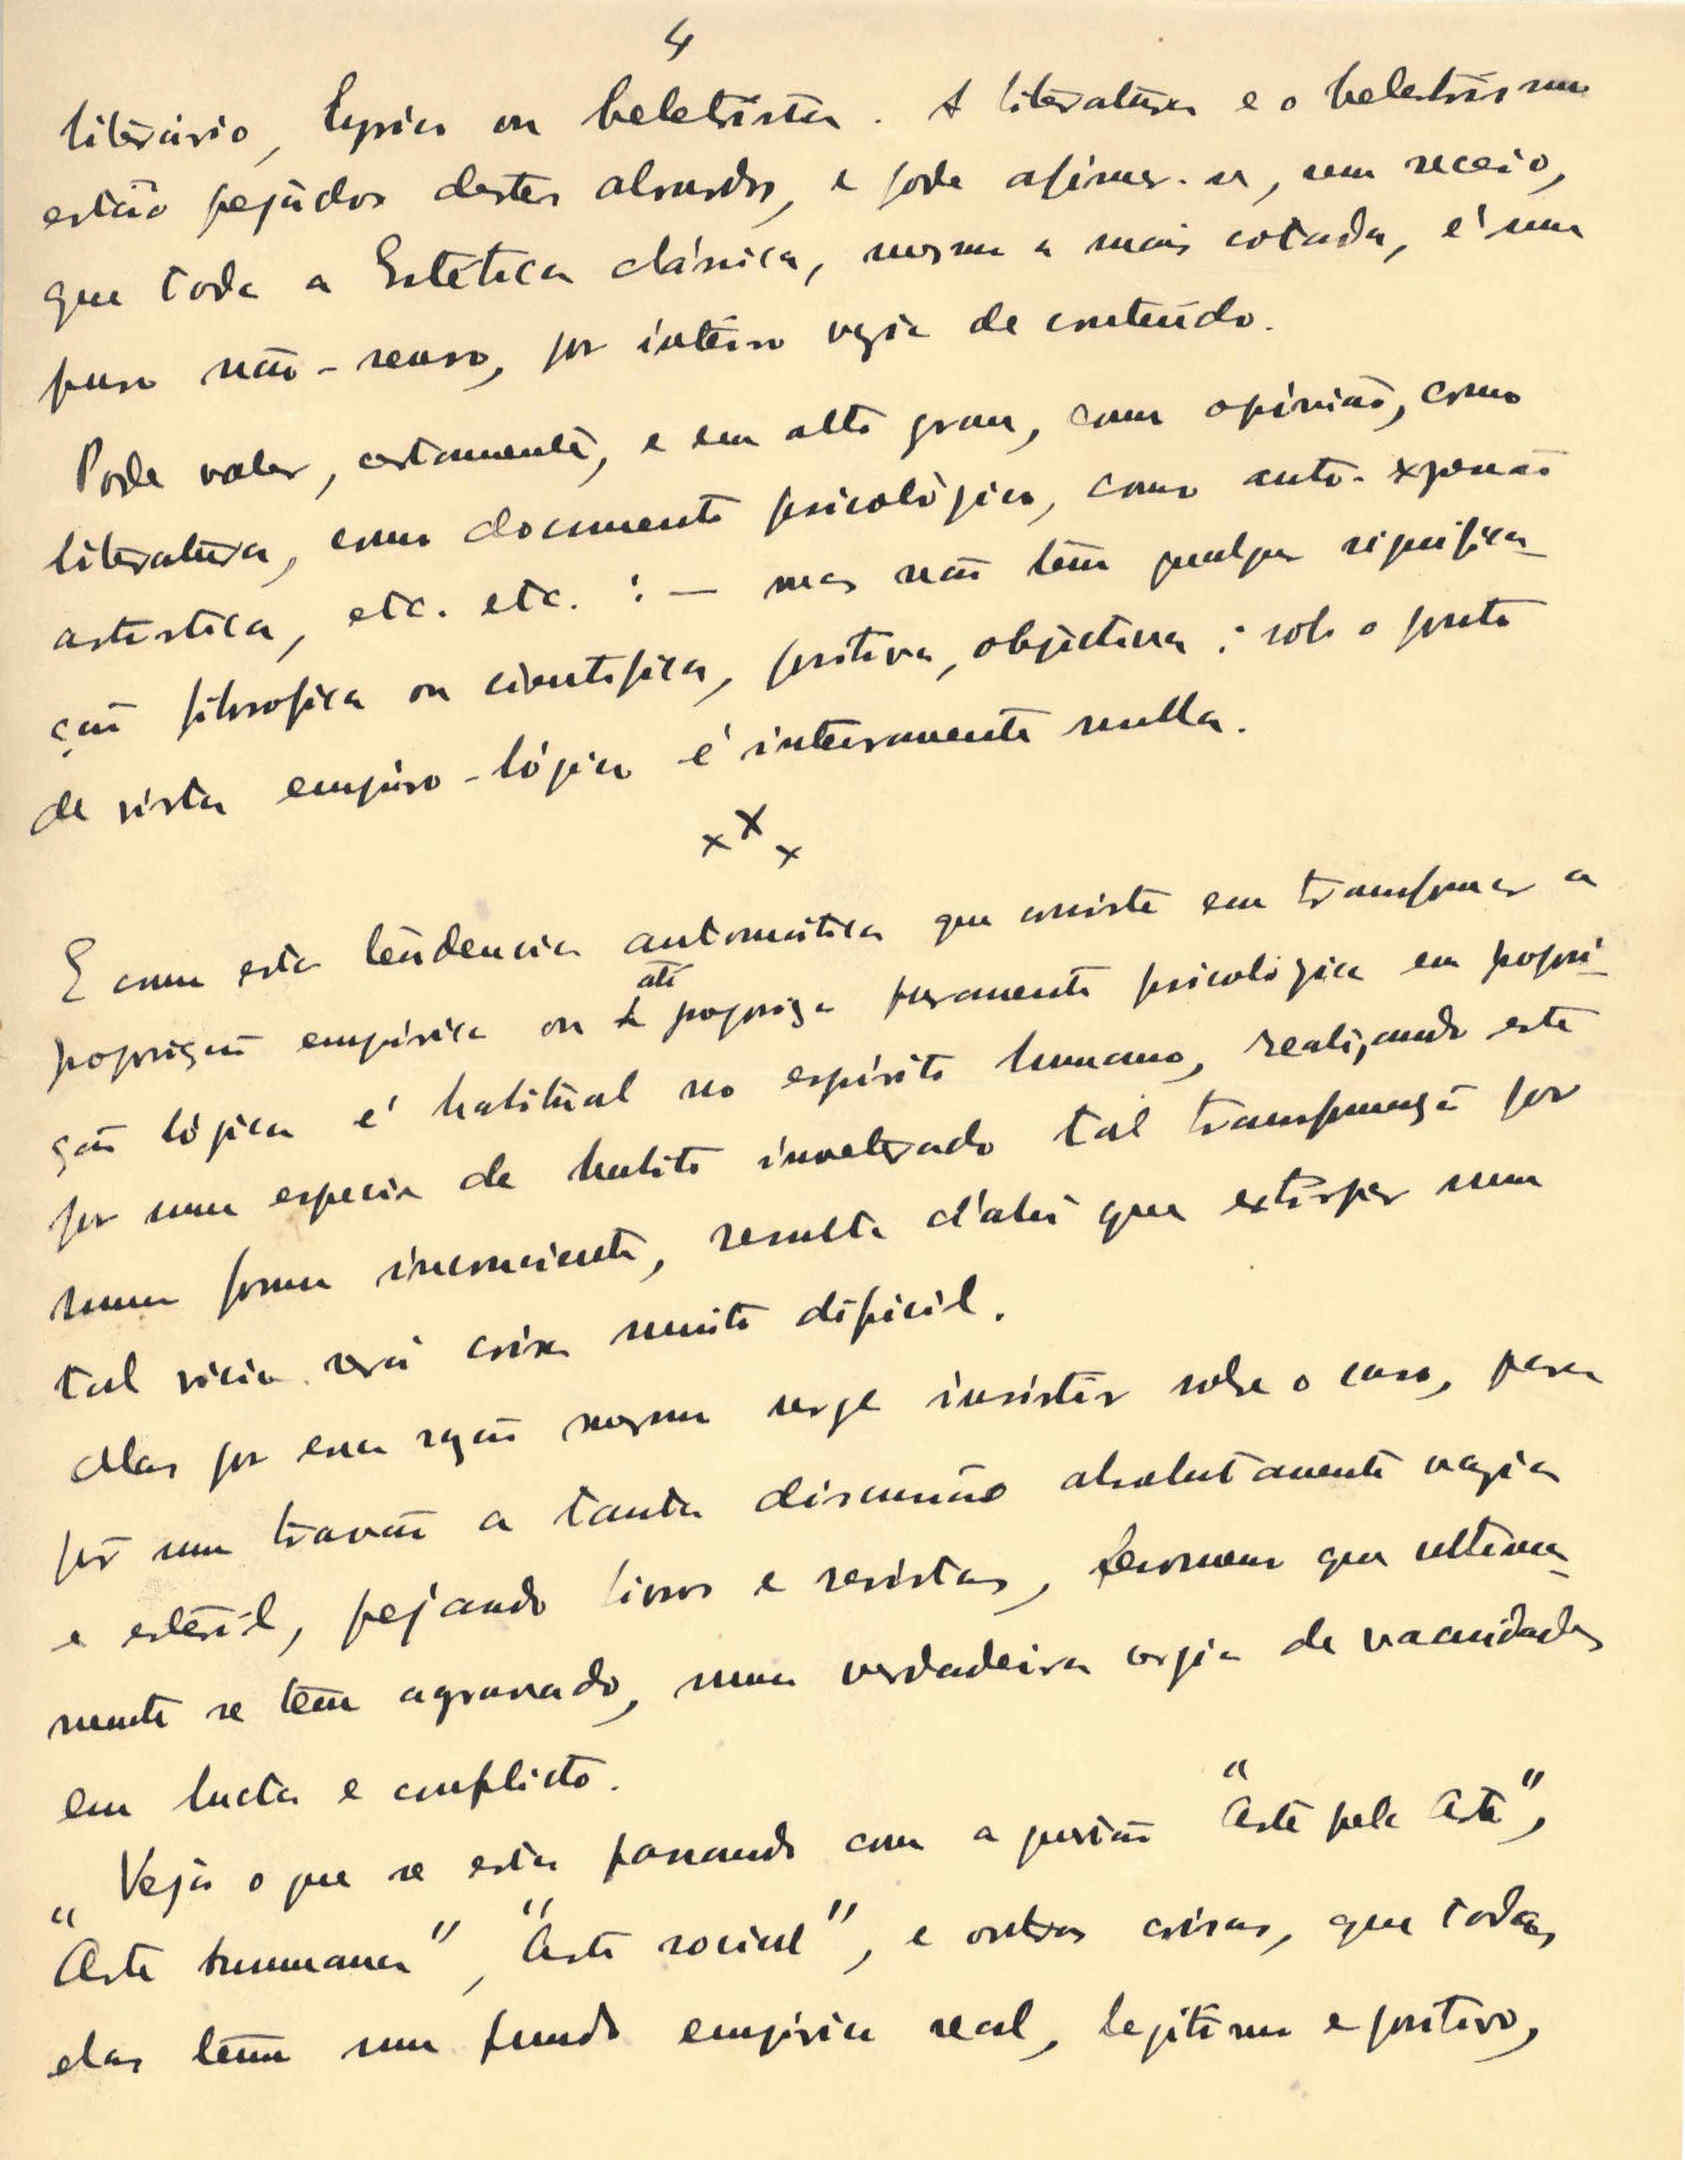 4
literário, lyrico ou beletrista. A literatura e o beletrismo
estão pejados destes absurdos, e pode afirmar-se, sem receio,
que toda a Estética clássica, mesmo a mais cotada, é um
puro não-senso, por inteiro vazia de conteúdo.
Pode valer, certamente, e em alto grau, como opinião, como
literatura, como documento psicológico, como auto-expressão
artistica, etc. etc. : — mas não têm qualquer significa-
ção filosofica ou cientifica, positiva, objectiva : sob o ponto
de vista empiro-lógico é inteiramente nulla.
x X x
E como esta tendencia automática que consiste em transformar a
proposição empirica ou até a proposição puramente psicológica em proposi-
ção lógica é habitual no espirito humano, realizando este
por uma especie de habito inveterado tal transformação por
numa forma inconsciente, resulta d'ahi que extirpar um
tal vicio será coisa muito dificil.
Mas por essa razão mesma urge insistir sobre o caso, para
pôr um travão a tanta discussão absolutamente vazia
e estéril, pejando livros e revistas, fenomeno que ultima-
mente se têm agravado, numa verdadeira orgia de vacuidades
em lucta e conflicto.
Veja o que se está passando com a questão "Arte pela Arte",
"Arte humana", "Arte social", e outras coisas, que todas
elas têm um fundo empirico real, legitimo e positivo,